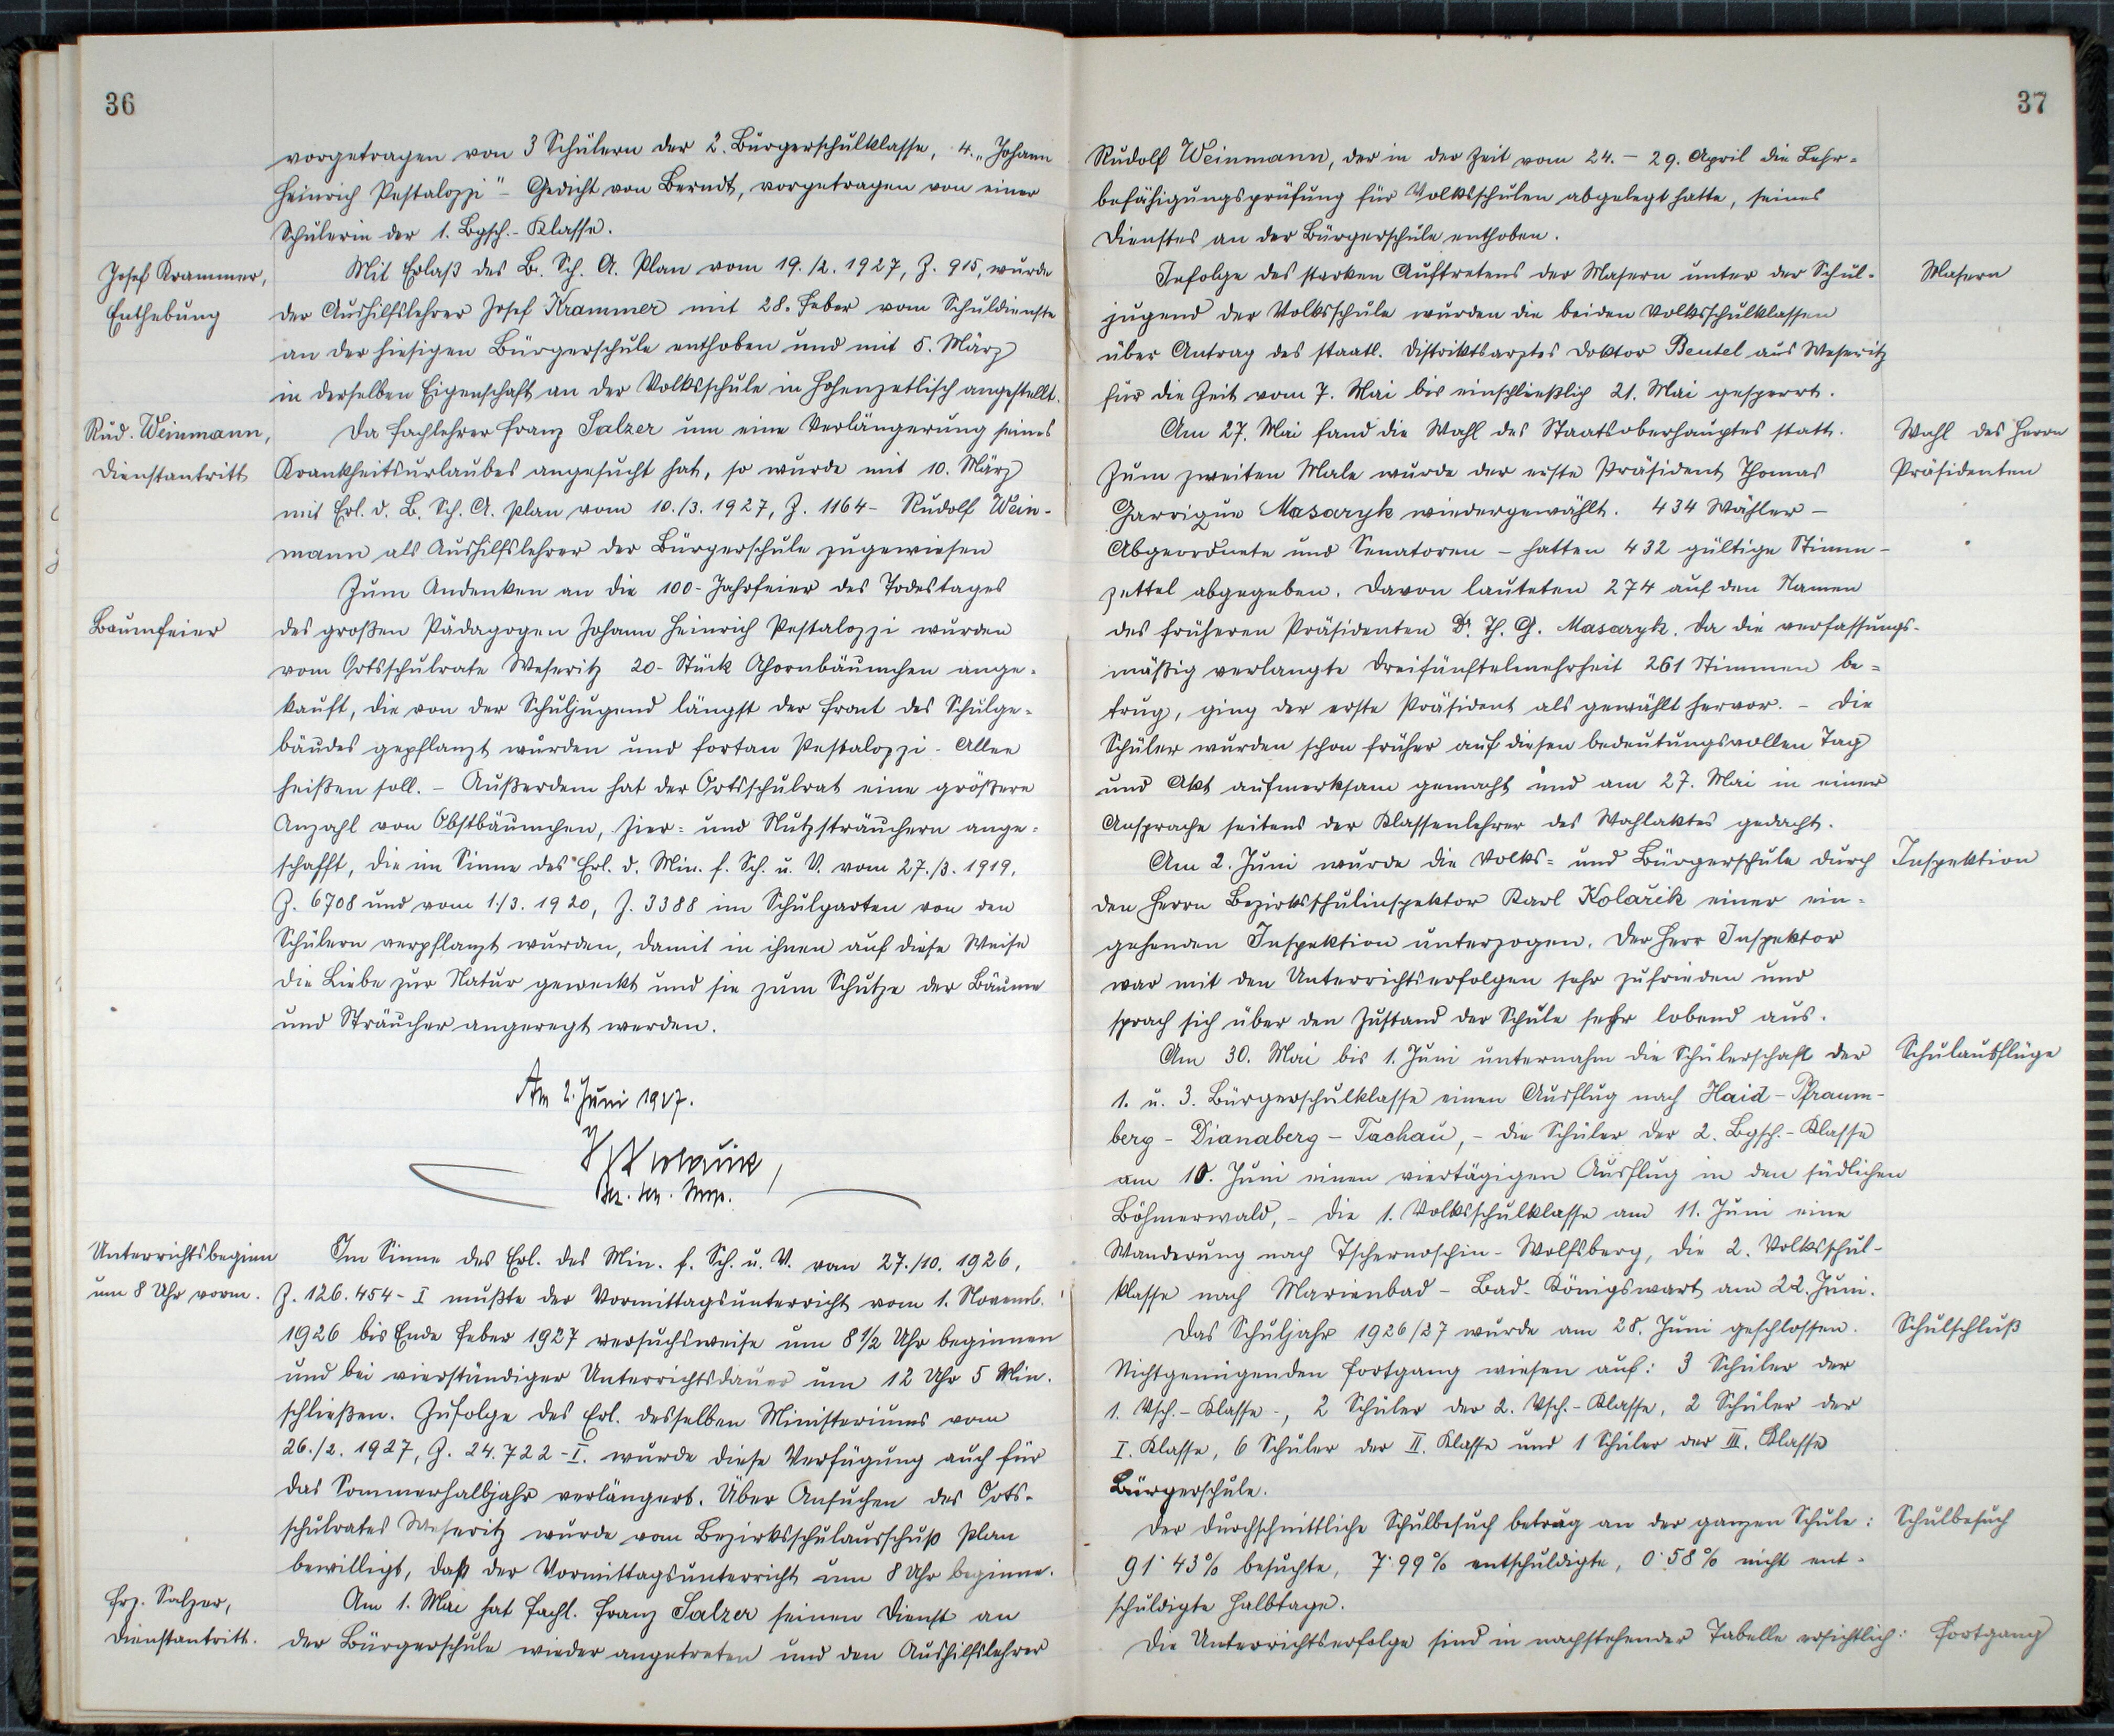 36
vorgetragen von 3 Schülern der 2. Bürgerschulklasse, 4. „Johann
Heinrich Pestalozzi" – Gedicht von Berndt, vorgetragen von einer
Schülerin der 1. Bgsch.-Klasse.
Josef Krammer,
Enthebung
Mit Erlaß des B. Sch. A. Plan vom 19./2. 1927, Z. 915, wurde
der Aushilfslehrer Josef Krammer mit 28. Feber vom Schuldienste
an der hiesigen Bürgerschule enthoben und mit 5. März
in derselben Eigenschaft an der Volksschule in Hohenzetlisch angestellt.
Rud. Weinmann,
Dienstantritt
Da Fachlehrer Franz Salzer um eine Verlängerung seines
Krankheitsurlaubes angesucht hat, so wurde mit 10. März
mit Erl. d. B. Sch. A. Plan vom 10./3. 1927, Z. 1164 – Rudolf Wein-
mann als Aushilfslehrer der Bürgerschule zugewiesen
Baumfeier
Zum Andenken an die 100-Jahrfeier des Todestages
des großen Pädagogen Johann Heinrich Pestalozzi wurden
vom Ortsschulrate Weseritz 20-Stück Ahornbäumchen ange-
kauft, die von der Schuljugend längst der Front des Schulge-
bäudes gepflanzt wurden und fortan Pestalozzi-Allee
heißen soll. – Außerdem hat der Ortsschulrat eine größere
Anzahl von Obstbäumchen, Zier- und Nutzsträuchern ange-
schafft, die im Sinne des Erl. d. Min. f. Sch. u. V. vom 27./3. 1919,
Z. 6708 und vom 1./3. 1920, Z. 3388 im Schulgarten von den
Schülern verpflanzt wurden, damit in ihnen auf diese Weise
die Liebe zur Natur geweckt und sie zum Schutze der Bäume
und Sträucher angeregt werden.
Am 2. Juni 1927.
Unterrichtsbeginn
um 8 Uhr vorm.
Im Sinne des Erl. des Min. f. Sch. u. V. vom 27./10. 1926,
Z. 126.454-I mußte der Vormittagsunterricht vom 1. Novemb.
1926 bis Ende Feber 1927 versuchsweise um 8 1/2 Uhr beginnen
und bei vierstündiger Unterrichtsdauer um 12 Uhr 5 Min.
schließen. Zufolge des Erl. desselben Ministeriums vom
26./2. 1927, Z. 24.722-I. wurde diese Verfügung auch für
das Sommerhalbjahr verlängert. Über Ansuchen des Orts-
schulrates Weseritz wurde vom Bezirksschulausschuß Plan
bewilligt, daß der Vormittagsunterricht um 8 Uhr beginne.
Frz. Salzer,
Dienstantritt.
Am 1. Mai hat Fachl. Franz Salzer seinen Dienst an
der Bürgerschule wieder angetreten und den Aushilfslehrer
37
Rudolf Weinmann, der in der Zeit vom 24. – 29. April die Lehr-
befähigungsprüfung für Volksschulen abgelegt hatte, seines
Dienstes an der Bürgerschule enthoben.
Infolge des starken Auftretens der Masern unter der Schul-
jugend der Volksschule wurden die beiden Volksschulklassen
über Antrag des staatl. Distriktsarztes Doktor Beutel aus Weseritz
für die Zeit vom 7. Mai bis einschließlich 21. Mai gesperrt.
Masern
Am 27. Mai fand die Wahl des Staatsoberhauptes statt.
Zum zweiten Male wurde der erste Präsident Thomas
Garrigue Masaryk wiedergewählt. 434 Wähler –
Abgeordnete und Senatoren – hatten 432 gültige Stimm-
zettel abgegeben. Davon lauteten 274 auf den Namen
des früheren Präsidenten Dr. Th. G. Masaryk. Da die verfassungs-
mäßig verlangte Dreifünftelmehrheit 261 Stimmen be-
trug, ging der erste Präsident als gewählt hervor. – Die
Schüler wurden schon früher auf diesen bedeutungsvollen Tag
und Akt aufmerksam gemacht und am 27. Mai in einer
Ansprache seitens der Klassenlehrer des Wahlaktes gedacht.
Wahl des Herrn
Präsidenten
Am 2. Juni wurde die Volks- und Bürgerschule durch
den Herrn Bezirksschulinspektor Karl Kolařik einer ein-
gehenden Inspektion unterzogen. Der Herr Inspektor
war mit den Unterrichtserfolgen sehr zufrieden und
sprach sich über den Zustand der Schule sehr lobend aus.
Inspektion
Am 30. Mai bis 1. Juni unternahm die Schülerschaft der
1. u. 3. Bürgerschulklasse einen Ausflug nach Haid – Pfraum-
berg – Dianaberg – Tachau, – die Schüler der 2. Bgsch.-Klasse
am 10. Juni einen viertägigen Ausflug in den südlichen
Böhmerwald, – die 1. Volksschulklasse am 11. Juni eine
Wanderung nach Tschernoschin – Wolfsberg, die 2. Volksschul-
klasse nach Marienbad – Bad-Königswart am 22. Juni.
Schulausflüge
Das Schuljahr 1926/27 wurde am 28. Juni geschlossen.
Nichtgenügenden Fortgang wiesen auf: 3 Schüler der
1. Vsch.-Klasse-, 2 Schüler der 2. Vsch.-Klasse, 2 Schüler der
I. Klasse, 6 Schüler der II. Klasse und 1 Schüler der III. Klasse
Bürgerschule.
Schulschluß
Der durchschnittliche Schulbesuch betrug an der ganzen Schule:
91·43% besuchte, 7·99% entschuldigte, 0·58% nicht ent-
schuldigte Halbtage.
Schulbesuch
Die Unterrichtserfolge sind in nachstehender Tabelle ersichtlich:
Fortgang